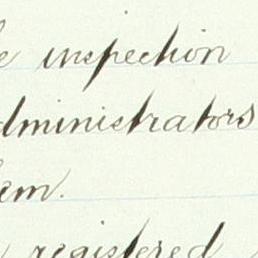 e inspection
dministrators
em.
registered